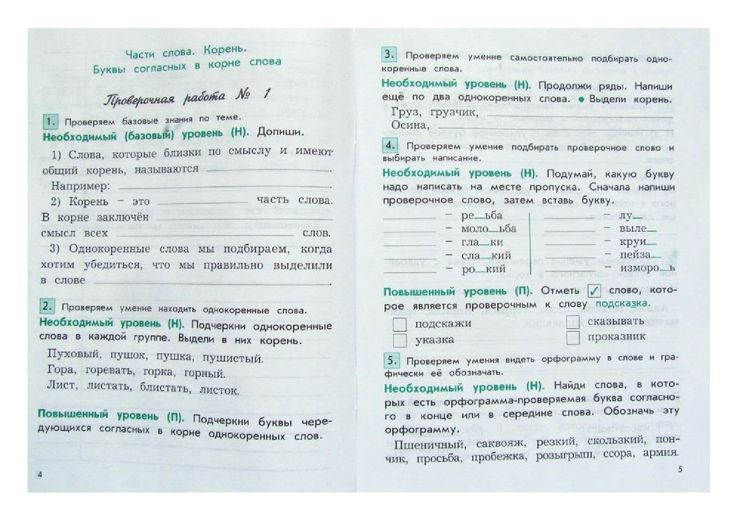 Части слова. Корень.
Буквы согласных в корне слова
Проверочная работа № 1
1. Проверяем базовые знания по теме.
Необходимый (базовый) уровень (Н). Допиши.
1) Слова, которые близки по смыслу и имеют
общий корень, называются
Например:
2) Корень – это часть слова.
В корне заключён
смысл всех слов.
3) Однокоренные слова мы подбираем, когда
хотим убедиться, что мы правильно выделили
в слове .
2. Проверяем умение находить однокоренные слова.
Необходимый уровень (Н). Подчеркни однокоренные
слова в каждой группе. Выдели в них корень.
Пуховый, пушок, пушка, пушистый.
Гора, горевать, горка, горный.
Лист, листать, блистать, листок.
Повышенный уровень (П). Подчеркни буквы чере-
дующихся согласных в корне однокоренных слов.
4
3. Проверяем умение самостоятельно подбирать одно-
коренные слова.
Необходимый уровень (Н). Продолжи ряды. Напиши
ещё по два однокоренных слова. • Выдели корень.
Груз, грузчик,
Осина,
4. Проверяем умение подбирать проверочное слово и
выбирать написание.
Необходимый уровень (Н). Подумай, какую букву
надо написать на месте пропуска. Сначала напиши
проверочное слово, затем вставь букву.
– ре_ьба – лу_
– моло_ьба – выле_
– гла_ки – круи_
– сла_кий – пейза_
– ро_кий – изморо_ь
Повышенный уровень (П). Отметь ✓ слово, кото-
рое является проверочным к слову подсказка.
подскажи сказывать
указка проказник
5. Проверяем умения видеть орфограмму в слове и гра-
фически её обозначать.
Необходимый уровень (Н). Найди слова, в кото-
рых есть орфограмма-проверяемая буква согласно-
го в конце или в середине слова. Обозначь эту
орфограмму.
Пшеничный, саквояж, резкий, скользкий, пон-
чик, просьба, пробежка, розыгрыш, ссора, армия.
5